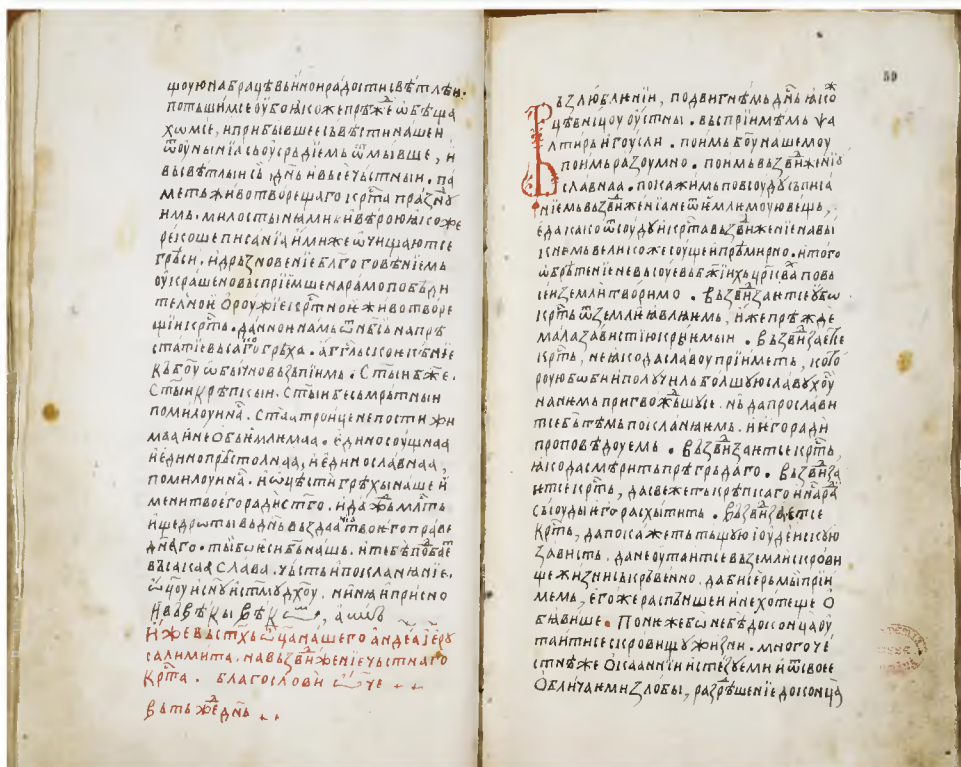 шоуюнабрацѣвьиноирадостисвѣтлѣи.
потьщимсеоубоꙗкожепрѣжеѡбѣща
хѡмсе, иприбывшеесьвѣстинашеи
ѿоунынїасьоусрьдїемь ѿмывше, и
вьсвѣтлыисъ, дн҃ьивьсечьстныи. па
метьживотворещагокрⷭ҇тапразⷣноу
имь. милостынꙗмиивѣроюꙗкоже
рекошеписанїаимижеѡчищаютсе
грѣси. идрьзновенїебл҃гоговѣнїемь
оукрашеновьсприемшенарамопобѣди
телноиѻроужїекрⷭ҇тноиживотворе
щїикрⷭ҇ть. данноинамьѿнб҃сьнапрѣ
статїевьсагогрѣха. аг҃гльскоиепѣнїе
кьбо҃уѡбычновьзьпїимь. ст҃ыибж҃е.
ст҃ыикрѣпкыи. ст҃ыибесьмрьтныи
помилоуина. ст҃аатроиценепостижи
мааинеѻбьимлимаа. единосоущнаа
иединопрⷭ҇толнаа, иединославнаа,
помилоуина. иѡцѣстигрѣхынашеи
менитвоегорадист҃го.
ищедротывьдн҃ьвьздаатвоиегоправе
днаго. тыбѡиесибь҃нашь. итебѣпⷣобаеⷮ
вьсакааслава. чьстьипоклꙗнꙗнїе.
ѿц҃оуисн҃оуист҃мудх҃оу. нинꙗиприсно
ивьвѣкывѣкⷨ, аминь
ижевьст҃хьѿц҃анашегоандреаїеру
салимита. навьздвиженїечьстнаго
крⷭ҇та. благослови ѿче
вьтьжⷣедн҃ь
59
Вьзлюблꙗнїи, подвигнѣмьдн҃ьꙗкоⷤ
цѣвницоуоустны. вьспрїимѣмь ѱа
лтирьигоусли. поимьбо҃унашемоу
поимьразоумно. поимьвьздвиженїю
славнаа. покажимьповсоудусьписа
нїемьвьздвиженїанеѿиемлемоуювещь,
едакакоѿсоудукрⷭ҇тавьздвиженїенавы
кнемьвеликожесоущеипрѣмирно. итого
ѡбрѣтенїеневьсоуевьбж҃їихьцрк҃ваповь
сеиземлитворимо. Вьздвизаитсеубѡ
крⷭ҇тьѿземлиꙗвлꙗемь, ижепрѣжде
малазавистїюкрыимыи. Вьздвизаетсе
крⷭ҇ть, неꙗкодаславоупрїиметь, кото
роуюбѡбииполучильболшуюславухо҃у
нанемьпригвожⷣьшусе. нь дапрослави
тсебⷭ҇тѣмьпокланꙗнꙗмь. иегоради
проповѣдоуемь. Вьздвизаитсекрⷭ҇ть,
ꙗкодасмѣрить прѣгрьдаго. Вьздвиза
итсекрⷭ҇ть, дасвежетькрѣпкаго
сьсоудыегорасхытить. Вьздвизаетсе
крⷭ҇ть, дапокажетьтьщуюїоудеискую
зависть. данеоутаитсевьземлискрови
щежизниськрьвенно. дабисерьмыприи
мемь, егожераспьншеинехотещеѻ
бꙗвише. Понежебѡнебѣдоконцаоу
таитисескровищужизни. многоче
стнѣжеѻкааннїиистезуемииѿсвоее
ѻбличаемизлобы, разⷣрѣшенїедоконца